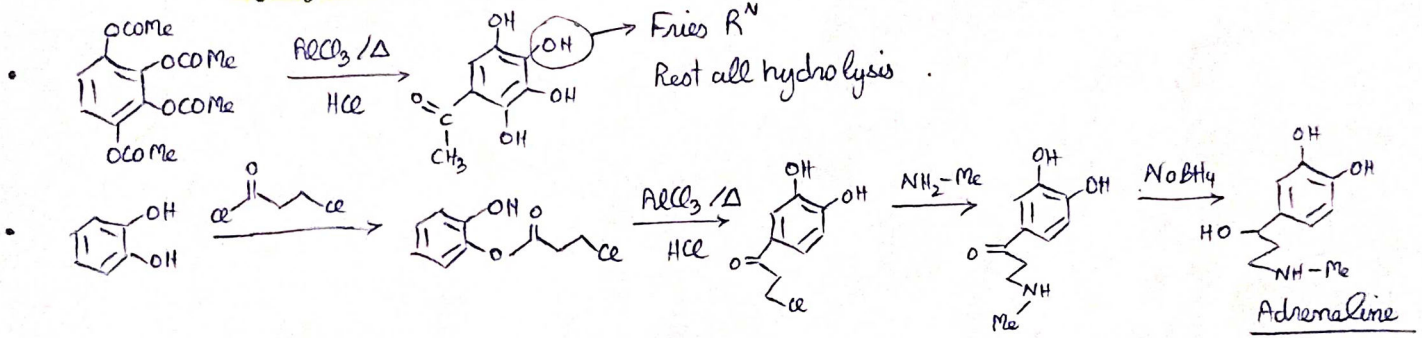 OCOMe
OCOMe
OCOMe
OCOMe
AlCl3 /Δ
HCl
OH
OH
OH
OH
O
C
CH3
Fries R^N
Rest all hydrolysis .
OH
OH
O
Cl
Cl
OH
O
O
Cl
AlCl3 /Δ
HCl
OH
OH
O
Cl
NH2-Me
OH
OH
O
NH
Me
NaBH4
OH
OH
HO
NH-Me
Adrenaline